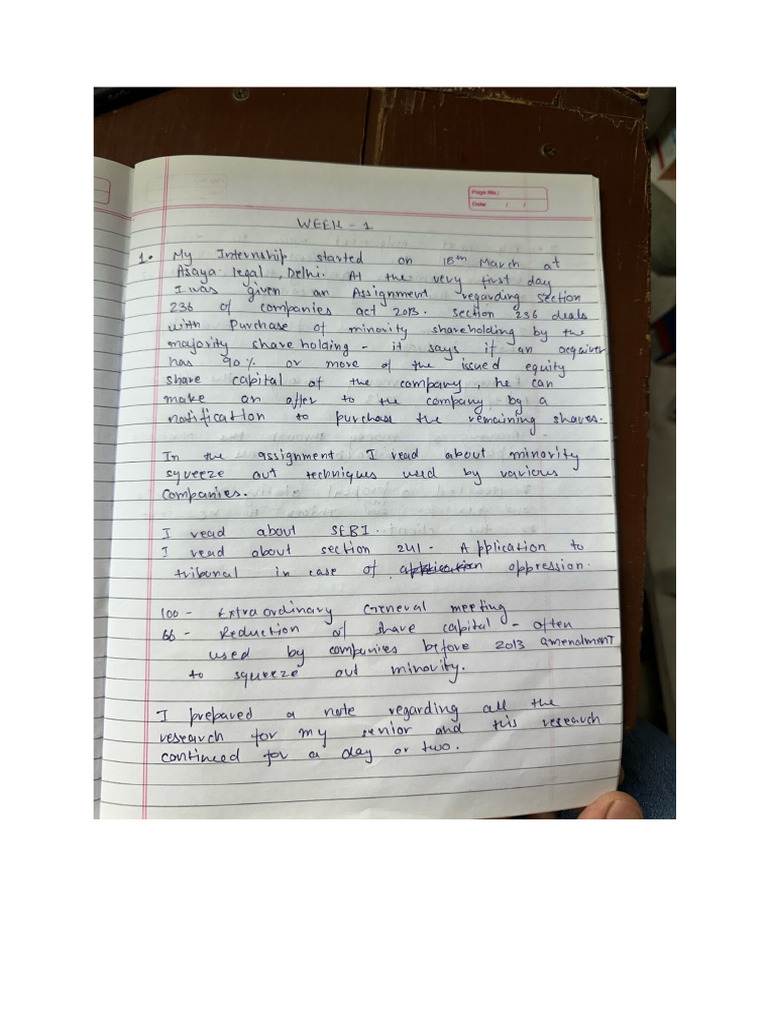 Page No.:
Date: / /
WEEK - 1
1. My Internship started on 15th March at
Asaya legal, Delhi. At the very first day
I was given an Assignment regarding section
236 of companies act 2013. section 236 deals
with Purchase of minority shareholding by the
majority shareholding - it says if an acquirer
has 90% or more of the issued equity
share capital of the company, he can
make an offer to the company by a
notification to purchase the remaining shares.
In the assignment I read about minority
squeeze out techniques used by various
companies.
I read about SEBI.
I read about section 241 - Application to
tribunal in case of application oppression.
100 - Extraordinary General meeting
66 - Reduction of share capital - often
used by companies before 2013 amendment
to squeeze out minority.
I prepared a note regarding all the
research for my senior and this research
continued for a day or two.